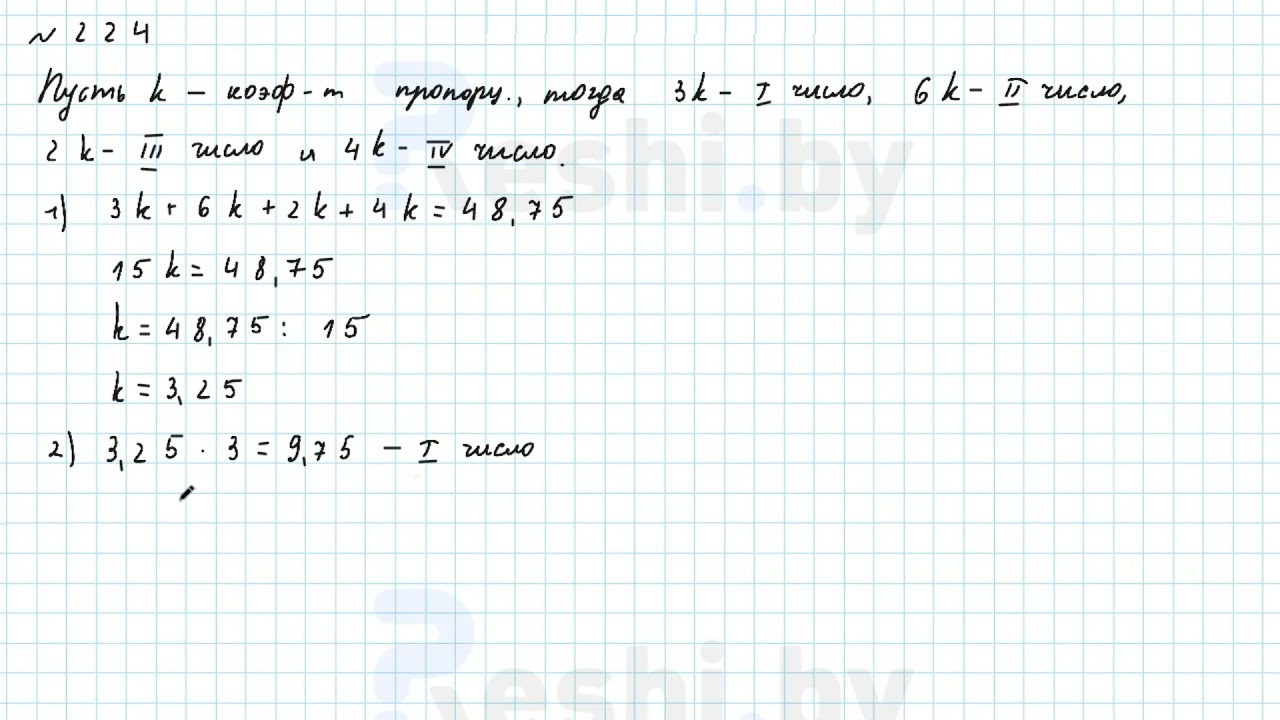 № 224
Пусть k – коэф-т пропорц., тогда 3k – I число, 6k – II число,
2k – III число и 4k – IV число.
1) 3k + 6k + 2k + 4k = 48,75
15k = 48,75
k = 48,75 : 15
k = 3,25
2) 3,25 · 3 = 9,75 – I число
Reshi.by
Reshi.by